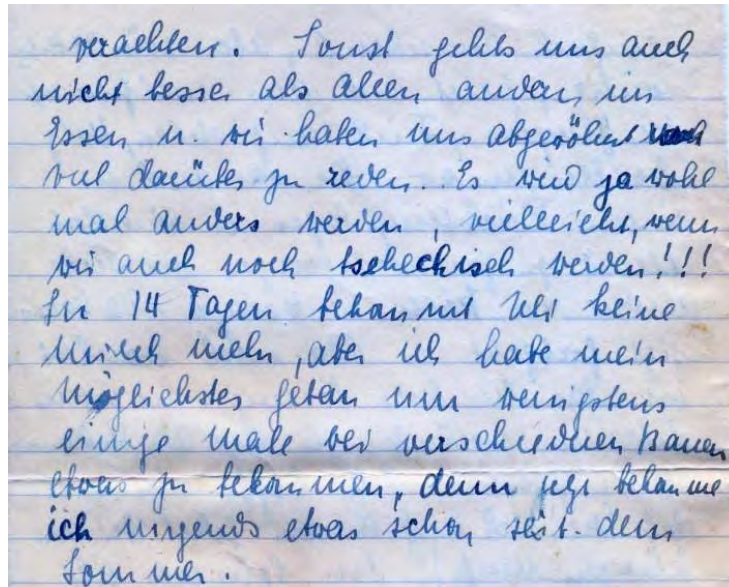 verachten. Sonst gehts uns auch
nicht besser als allen andern im
Essen u. wir haben uns abgewöhnt noch
viel darüber zu reden. Es wird ja wohl
mal anders werden, vielleicht, wenn
wir auch noch tschechisch werden!!!
In 14 Tagen bekommt Uli keine
Milch mehr, aber ich habe mein
möglichstes getan um wenigstens
einige male bei verschiednen Bauern
etwas zu bekommen, denn jezt bekomme
ich nirgends etwas schon seit dem
Sommer.